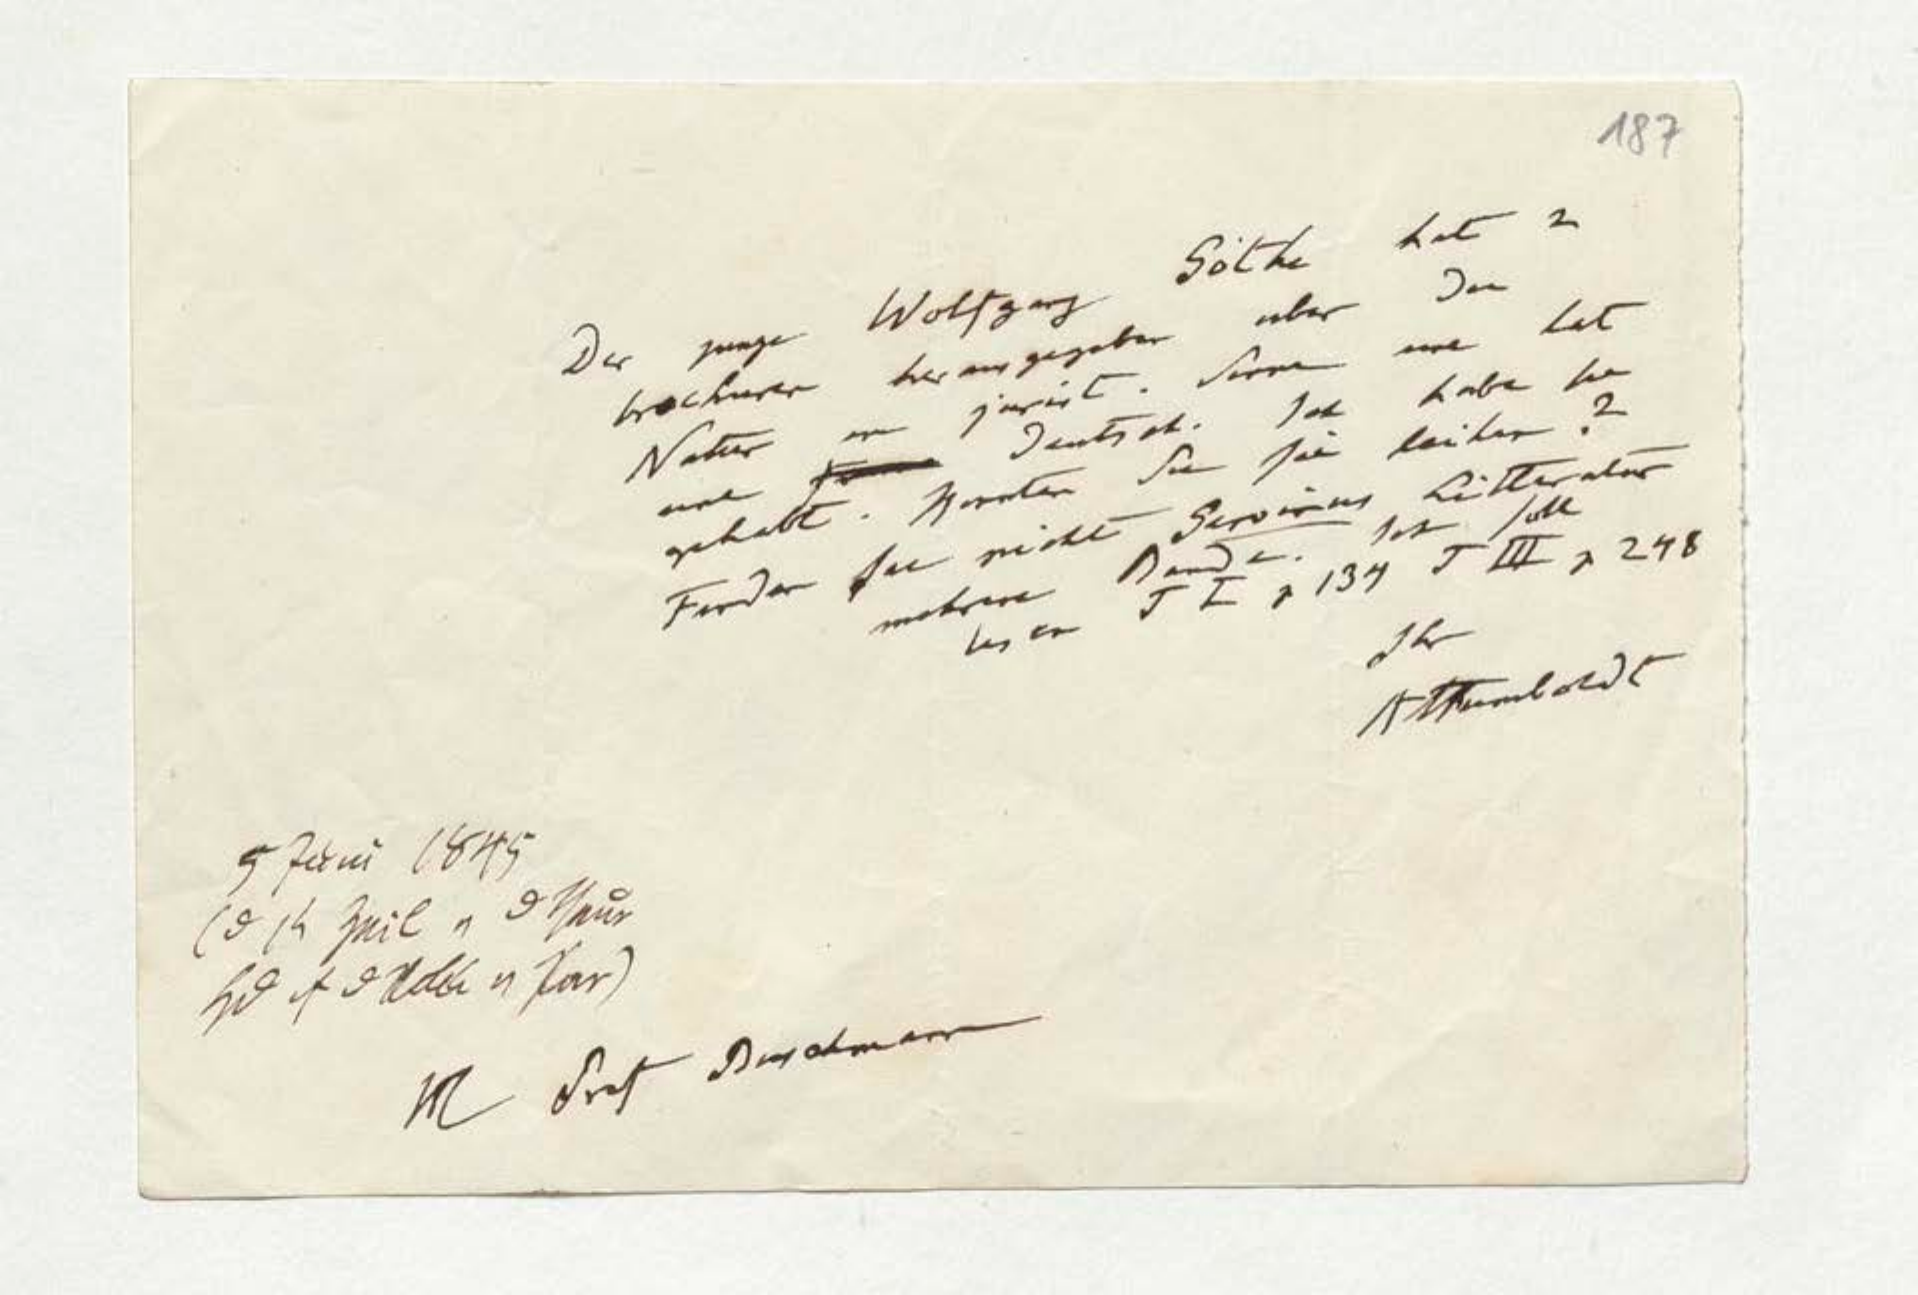 187
Der junge Wolfgang Göthe hat 2
brochuren herausgegeben uber den
Natur im jurist. Sinne eine lat
eine Deutsch. Ich habe sie
gehabt. Konnten Sie sie leihen?
Finden Sie nicht Gervinus Litteratur 2
mehrere Bande. Ich soll
lesen T I p 134 T III p 248
Ihr
AHumboldt
5 Juni 1845
(d
Prof Buschmann